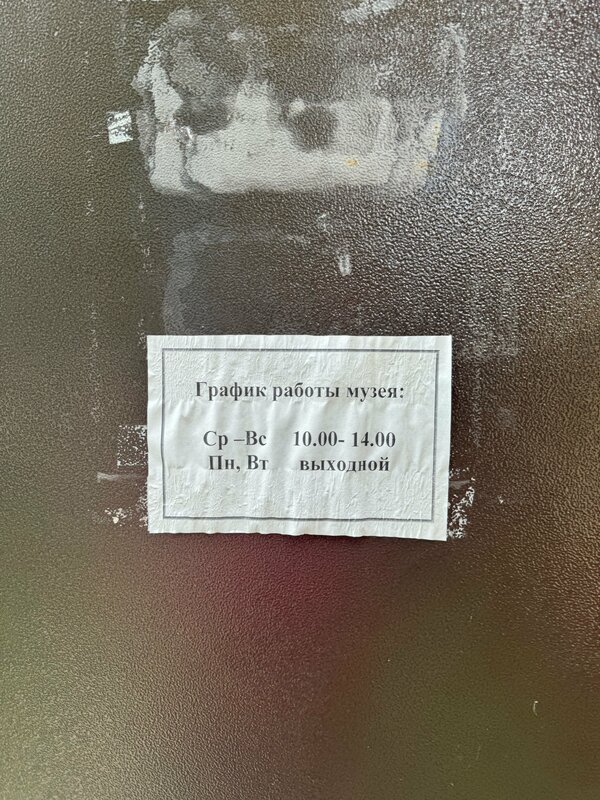 График работы музея:
Ср –Вс 10.00- 14.00
Пн, Вт выходной